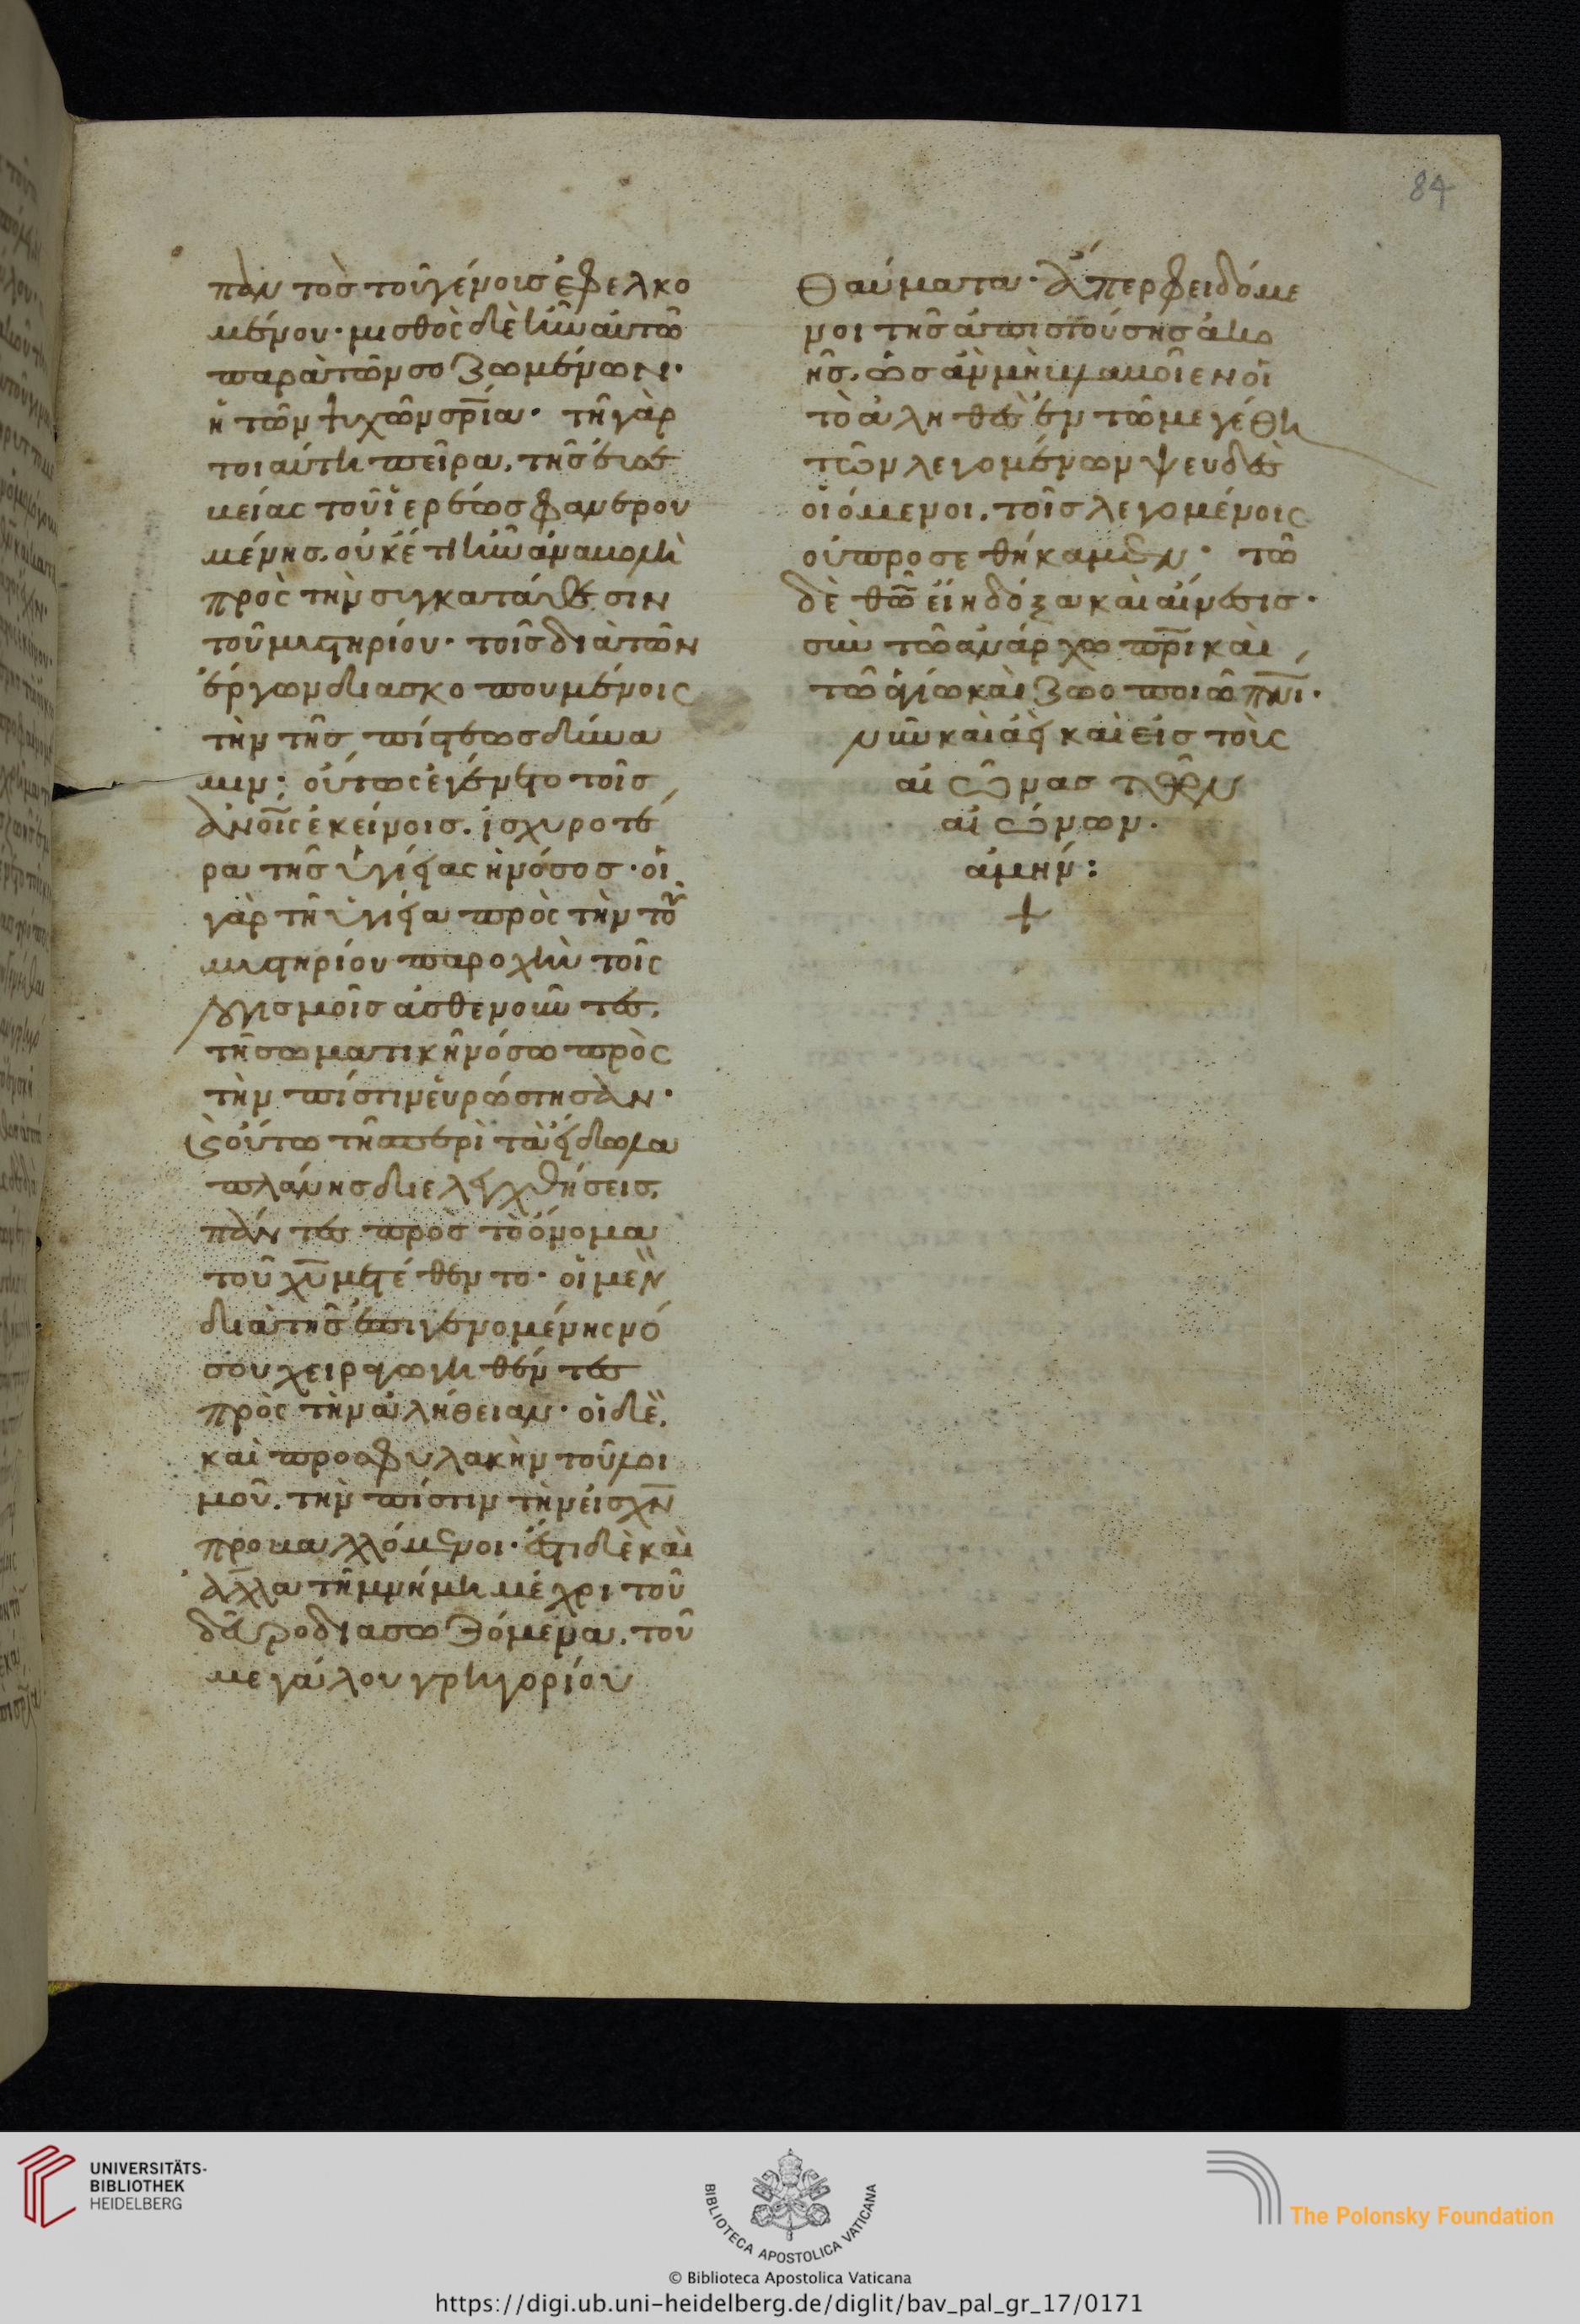 84
παντὸς τοῦ γένους ἐφελκο
μένου· μισθὸς δὲ ἦν αὐτῶ
παρὰ τῶν σωζωμένων·
ἡ τῶν ψυχῶν σρία· τῆ γὰρ
τοιαύτη πεῖρα, τῆς ἐπι
κείας τοῦ ἱερέως φανερου
μένης, οὐκέτι ἦν ἀναβολὴ
πρὸς τὴν συγκατάθεσιν
τοῦ μυστηρίου· τοῖς διὰ τῶν
ἔργων διασκοπουμένοις
τὴν τῆς πίστεως δύνα
μιν· οὕτως ἐγένετο τοῖς
ἀνοῖς ἐκείνοις, ἰσχυροτέ
ρα τῆς ὑγείας ἡ νόσος· οἱ
γὰρ τῆ ὑγεία πρὸς τὴν τοῦ
μυστηρίου παροχὴν τοῖς
λογισμοῖς ἀσθενοῦντες,
τῆ σωματικῆ νόσω πρὸς
τὴν πίστιν εὐρώστησαν·
καὶ οὕτω τῆς περὶ τὰ εἴδωλα
πλάνης διελεγχθήσεις,
πάντες πρὸς τὸ ὄνομα
τοῦ χυ μετέθεντο· οἱ μὲν
διὰ τῆς ἐπιγενομένης νό
σου χειραγωγηθέντες
πρὸς τὴν ἀλήθειαν· οἱ δὲ,
καὶ προφυλακὴν τοῦ λοι
μοῦ, τὴν πίστιν τὴν εἰς χν
προβαλλόμενοι· ἔστι δὲ καὶ
ἄλλα τῆ μνήμη μέχρι τοῦ
δεῦρο διασωζόμενα, τοῦ
μεγάλου γρηγορίου
θαύματα· ἅπερ φειδόμε
νοι τῆς ἀπιστούσης ἀκο
ῆς, ὡς ἂν μὴ βλαβοῖεν οἱ
τὸ ἀληθὲς ἐν τῶ μεγέθη
τῶν λεγομένων ψευδὲς
οἰόμενοι, τοῖς λεγομένοις
οὐ προσεθήκαμεν· τῶ
δὲ θῶ εἴη δόξα καὶ αἴνεσις·
σὺν τῶ ἀνάρχω πρι καὶ
τῶ ἁγίω καὶ ζωοποιῶ πνι·
νῦν καὶ ἀεὶ καὶ εἰς τοὺς
αἰῶνας τῶν
αἰώνων·
ἀμήν:
+
UNIVERSITÄTS-
BIBLIOTHEK
HEIDELBERG
BIBLIOTECA APOSTOLICA VATICANA
The Polonsky Foundation
© Biblioteca Apostolica Vaticana
https://digi.ub.uni-heidelberg.de/diglit/bav_pal_gr_17/0171